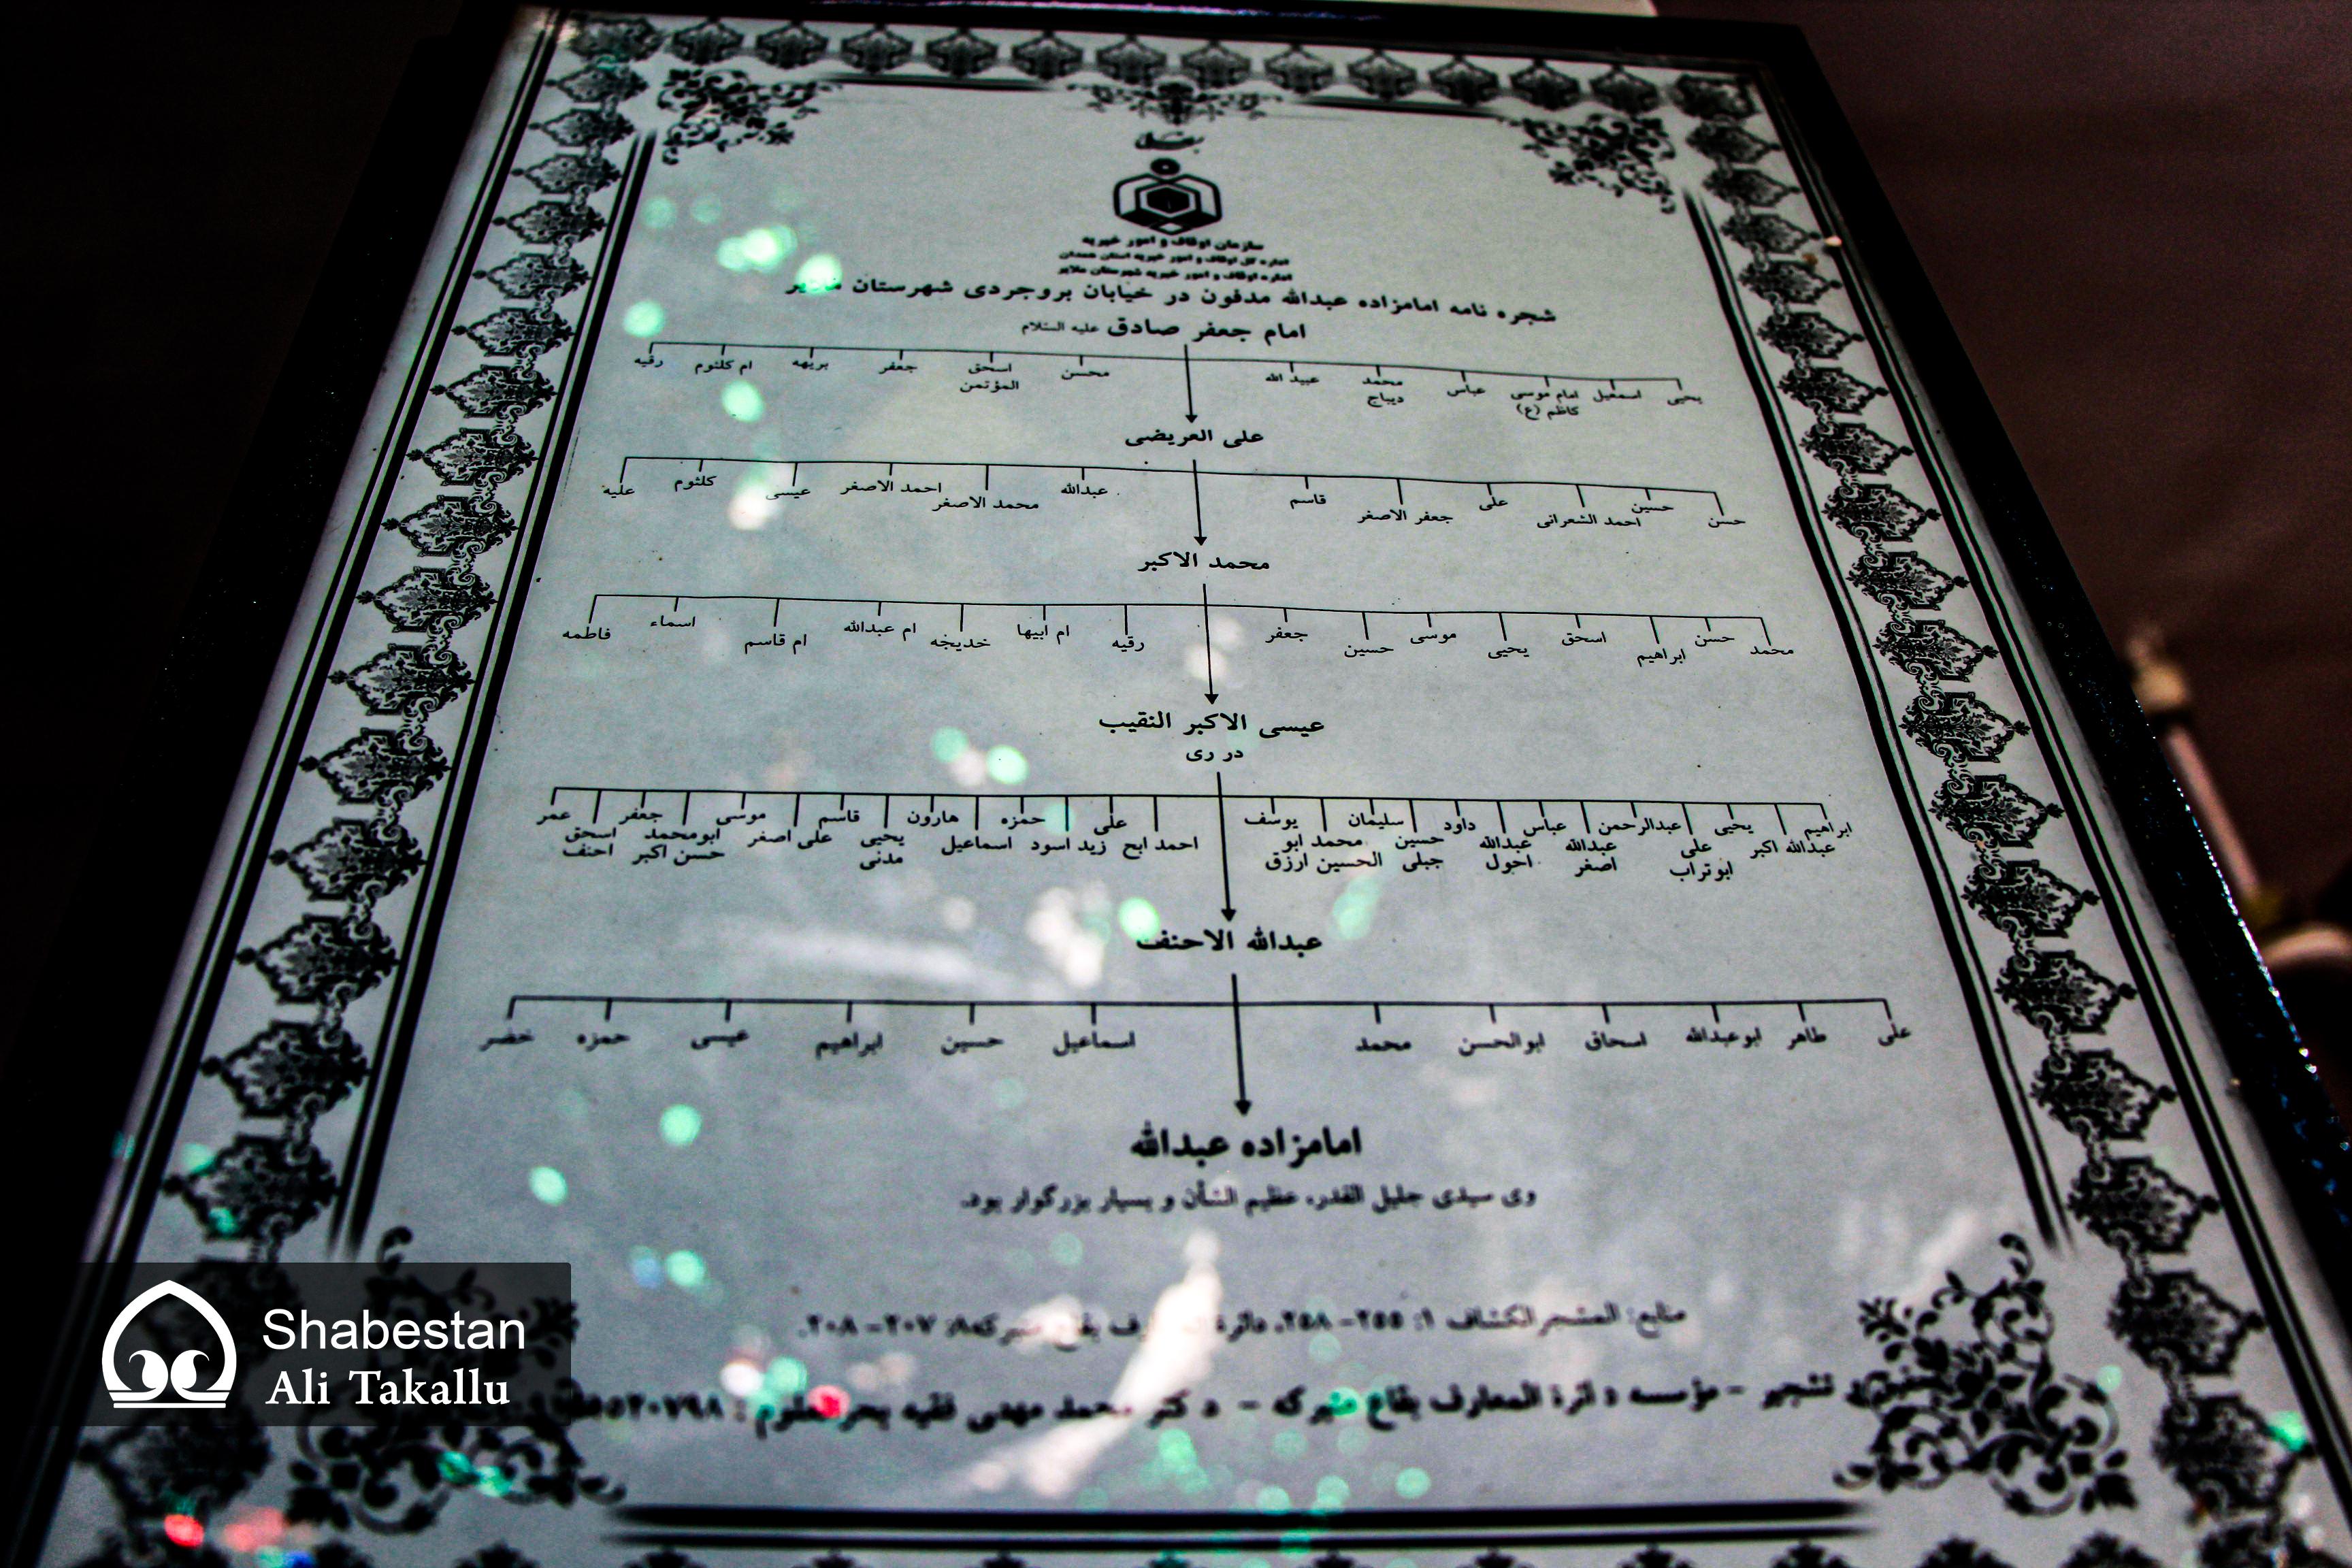 سازمان اوقاف و امور خیریه
اداره کل اوقاف و امور خیریه استان همدان
اداره اوقاف و امور خیریه شهرستان ملایر
شجره نامه امامزاده عبدالله مدفون در خیابان بروجردی شهرستان ملایر
امام جعفر صادق علیه السلام
یحیی اسمعیل امام موسی کاظم (ع) عباس محمد دیباج عبید الله محسن اسحق المؤتمن جعفر بریهه ام کلثوم رقیه
علی العریضی
حسن حسین احمد الشعرانی علی جعفر الاصغر قاسم عبدالله محمد الاصغر احمد الاصغر عیسی کلثوم علیه
محمد الاکبر
محمد حسن ابراهیم اسحق یحیی موسی حسین جعفر رقیه ام ابیها خدیجه ام عبدالله ام قاسم اسماء فاطمه
عیسی الاکبر النقیب
در ری
ابراهیم یحیی عبدالرحمن عباس داود سلیمان یوسف علی حمزه هارون قاسم موسی جعفر عمر
عبدالله اکبر علی ابوتراب عبدالله اصغر عبدالله احول حسین جبلی محمد ابو الحسین ارزق احمد ابح زید اسود اسماعیل یحیی مدنی علی اصغر ابومحمد حسن اکبر اسحق احنف
عبدالله الاحنف
علی طاهر ابوعبدالله اسحاق ابوالحسن محمد اسماعیل حسین ابراهیم عیسی حمزه خضر
امامزاده عبدالله
وی سیدی جلیل القدر، عظیم الشأن و بسیار بزرگوار بود.
منابع: المشجر الکشاف ۱: ۲۵۵–۲۵۸، دائرة بقاع متبرکه ۸: ۲۰۷–۲۰۸.
تشجیر – مؤسسه دائرة المعارف بقاع متبرکه – دکتر محمد مهدی فقیه بحرالعلوم :
Shabestan
Ali Takallu